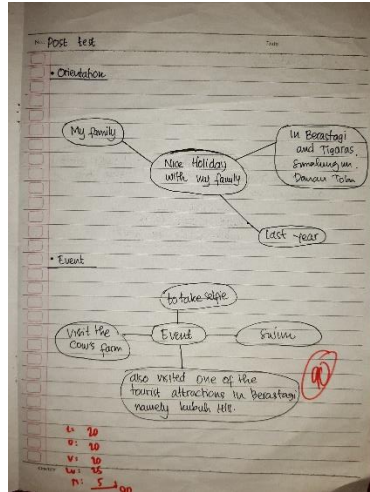 Post test
• Orientation
My family
Nice Holiday
with my family
In Berastagi
and Tigaras,
Simalungun.
Danau Toba
Last year
• Event
to take selfie
Visit the
Cow's farm
Event
Swim
also visited one of the
tourist attractions in Berastagi
namely kubuh
90
20
O: 20
V: 20
25
5
90